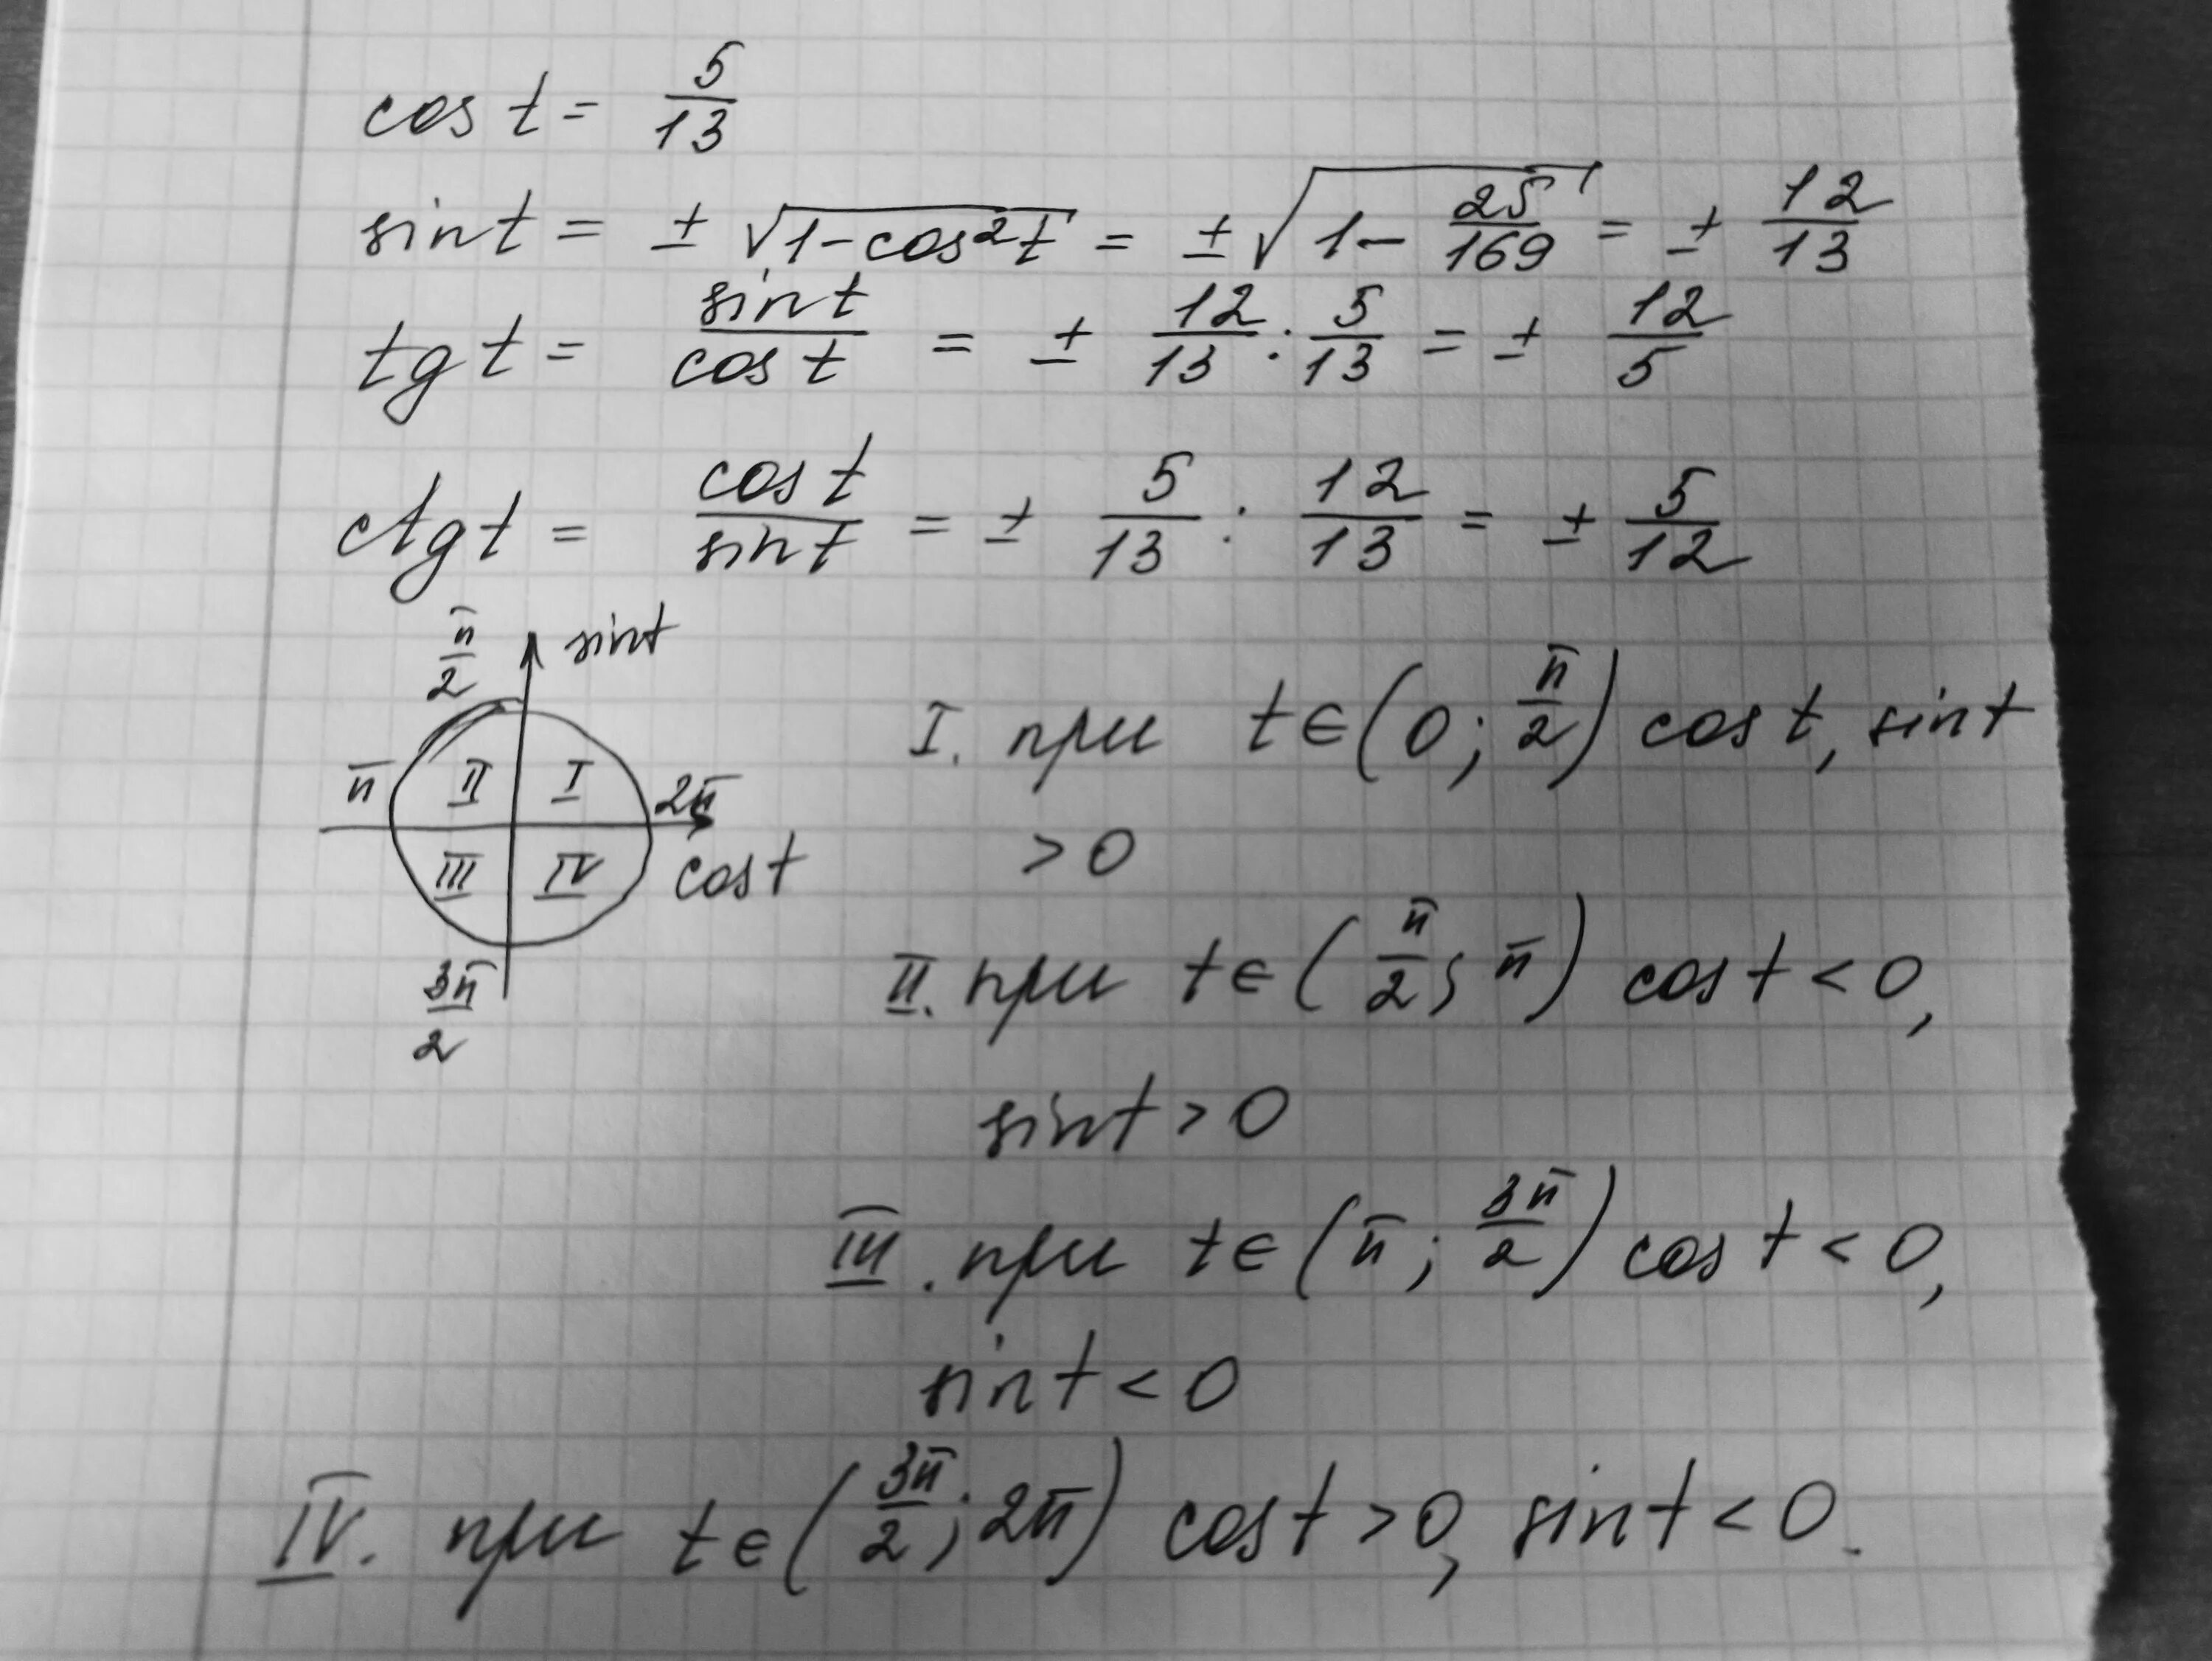 cos t = 5/13
sin t = ± √(1-cos²t) = ± √(1 - 25/169) = ± 12/13
tg t = sin t/cos t = ± 12/13 : 5/13 = ± 12/5
ctg t = cos t/sin t = ± 5/13 : 12/13 = ± 5/12
π/2 sin t
π II I 2π
III IV cos t
3π/2
I. при t∈(0; π/2) cos t, sin t
> 0
II. при t∈(π/2; π) cos t < 0,
sin t > 0
III. при t∈(π; 3π/2) cos t < 0,
sin t < 0
IV. при t∈(3π/2; 2π) cos t > 0, sin t < 0.